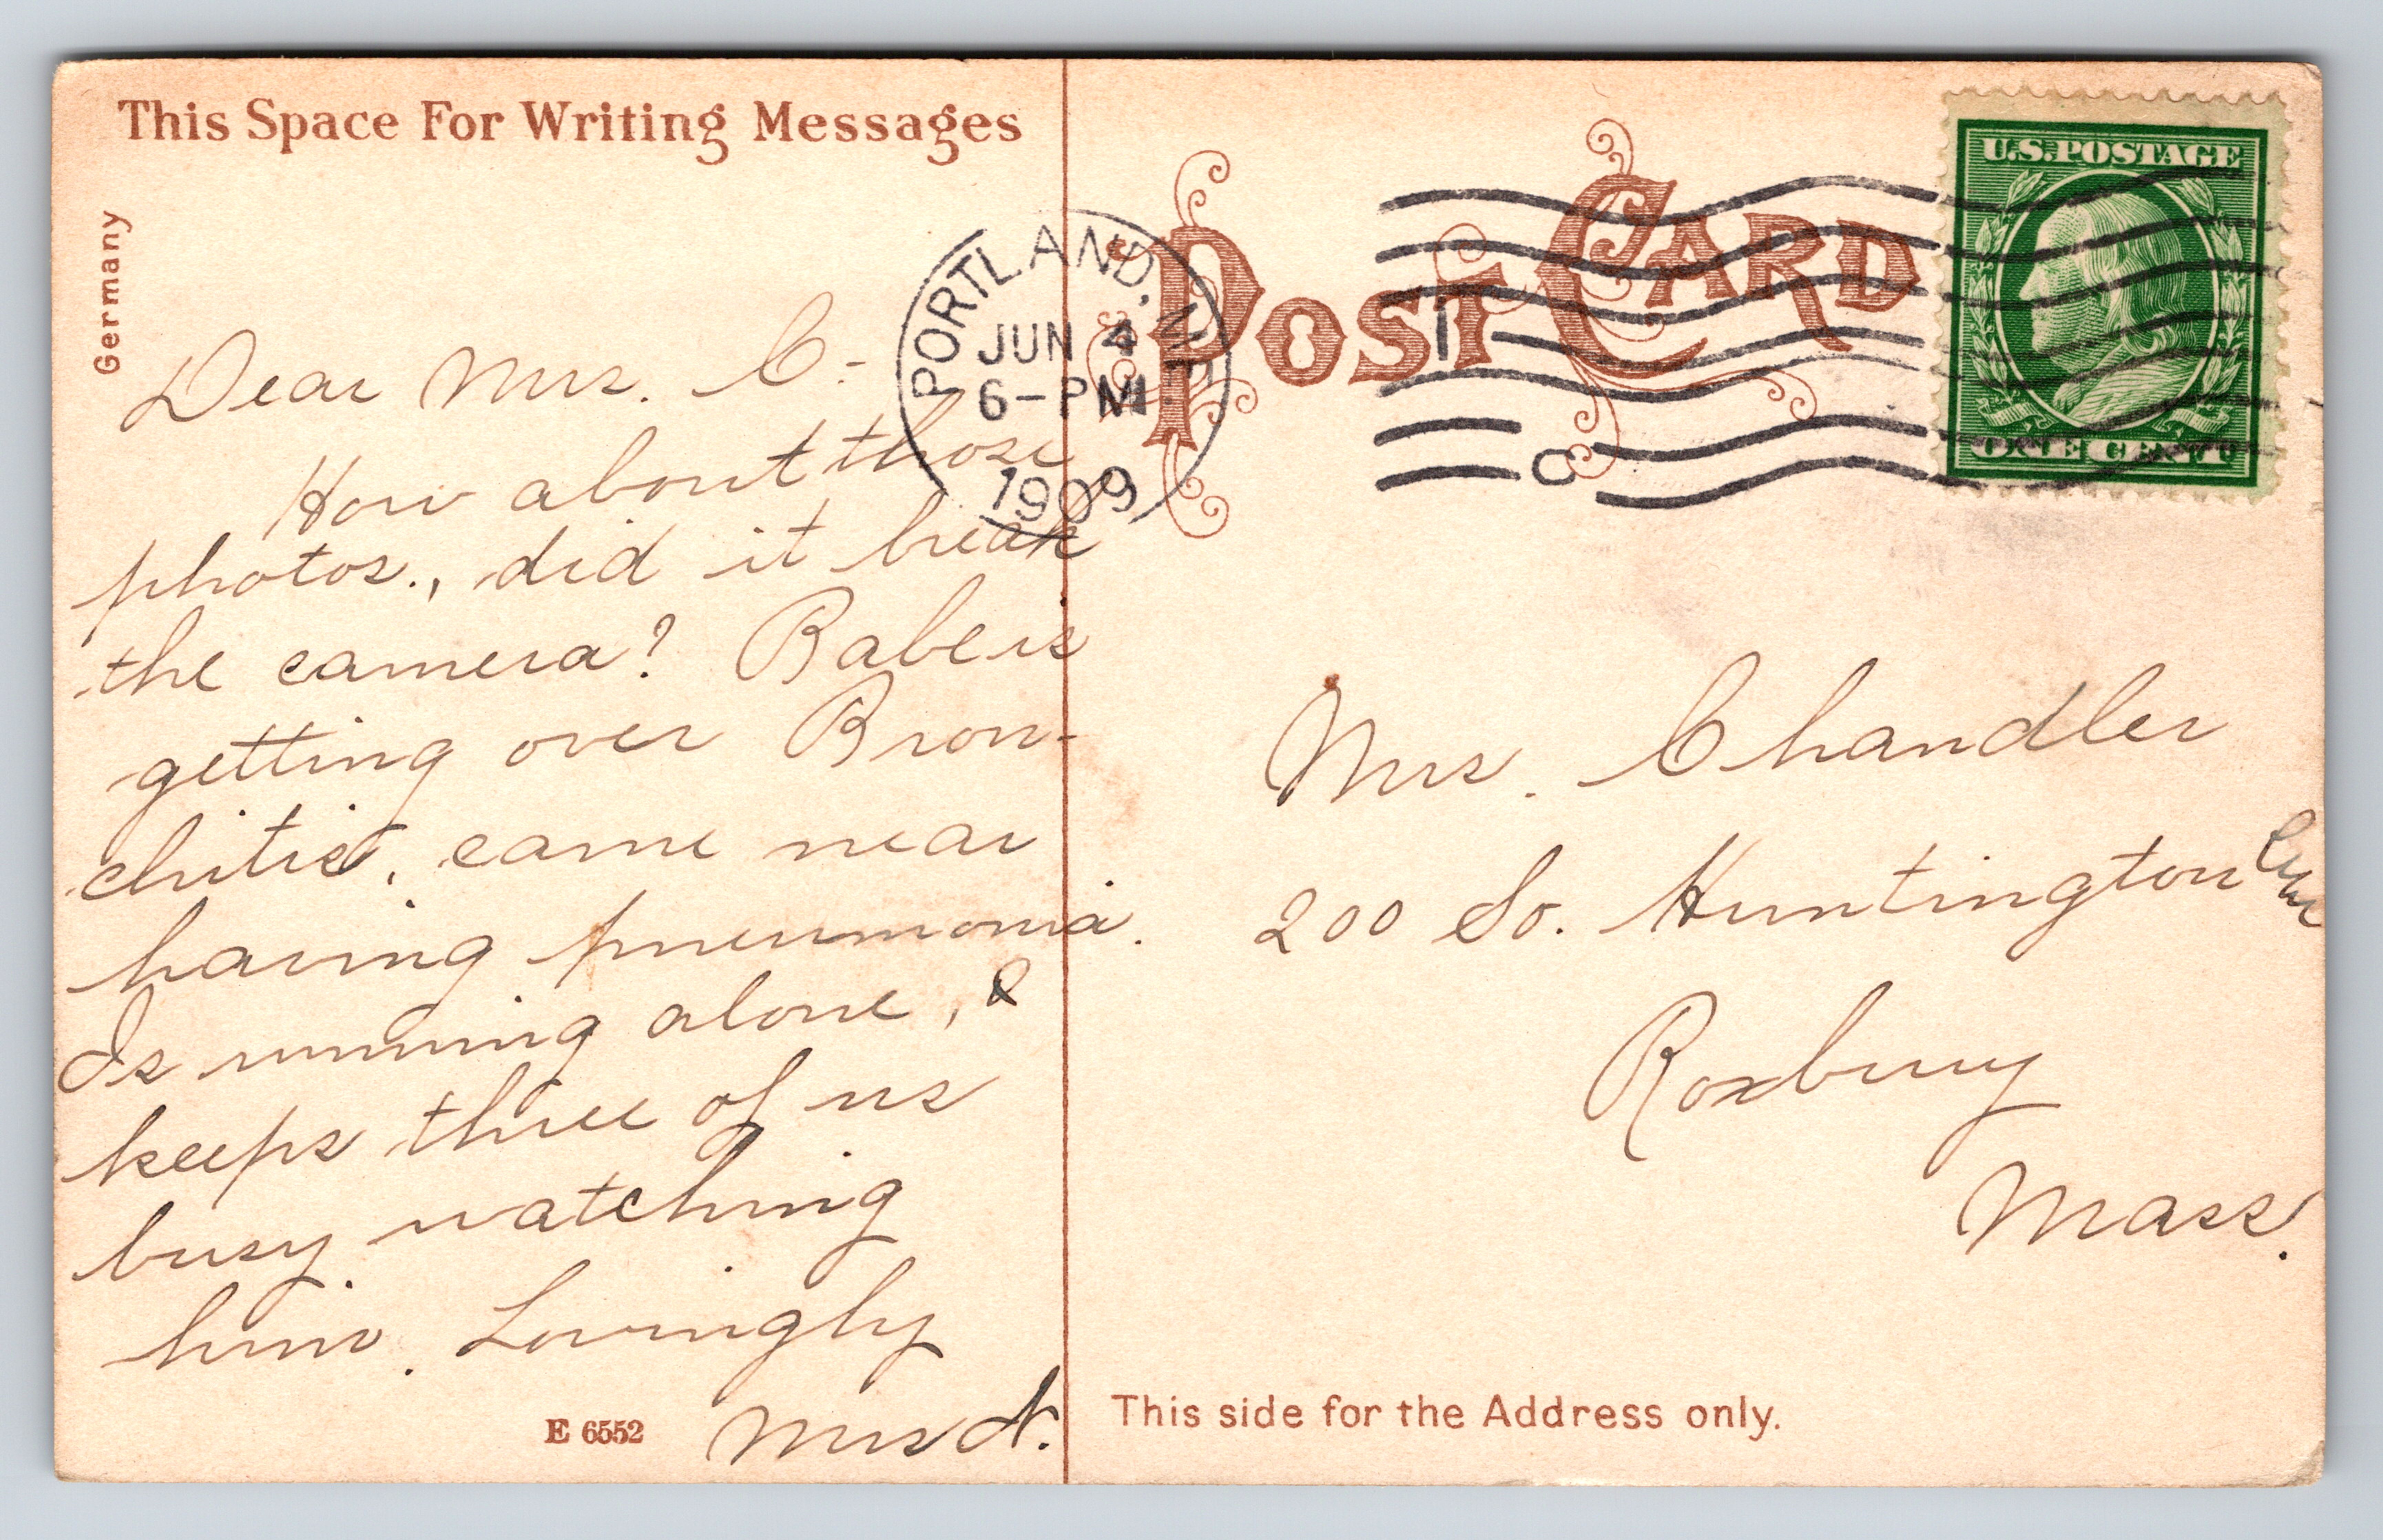 This Space For Writing Messages
Germany
Dear Mrs. C-
How about those
photos., did it break
the camera? Babe is
getting over Bron-
chitis, came near
having pneumonia.
Is running alone, &
keeps three of us
busy watching
him. Lovingly
Mrs
E 6552
PORTLAND, ME.
JUN 4
6-PM
1909
POST CARD
U.S.POSTAGE
ONE CENT
Mrs. Chandler
200 So. Huntington
Roxbury
Mass.
This side for the Address only.